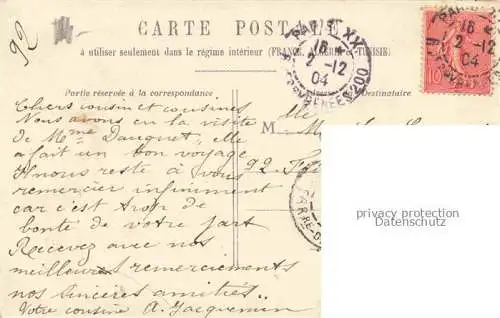 92
CARTE POSTALE
à utiliser seulement dans le régime intérieur (FRANCE, ALGÉRIE et TUNISIE)
PARIS XX
16
2 - 12
04
PYRENEES 200
PARIS
16
2 - 12
04
10
Partie réservée à la correspondance
Destinataire
Chers cousin et cousines
Nous avons eu la visite
de Mme Dauguet, elle
a fait un bon voyage
Il nous reste à vous
remercier infiniment
car c'est trop de
bonté de votre part
Recevez avec nos
meilleurs remerciements
nos sincères amitiés..
Votre cousine A. Jacquemin
M
92
privacy protection
Datenschutz